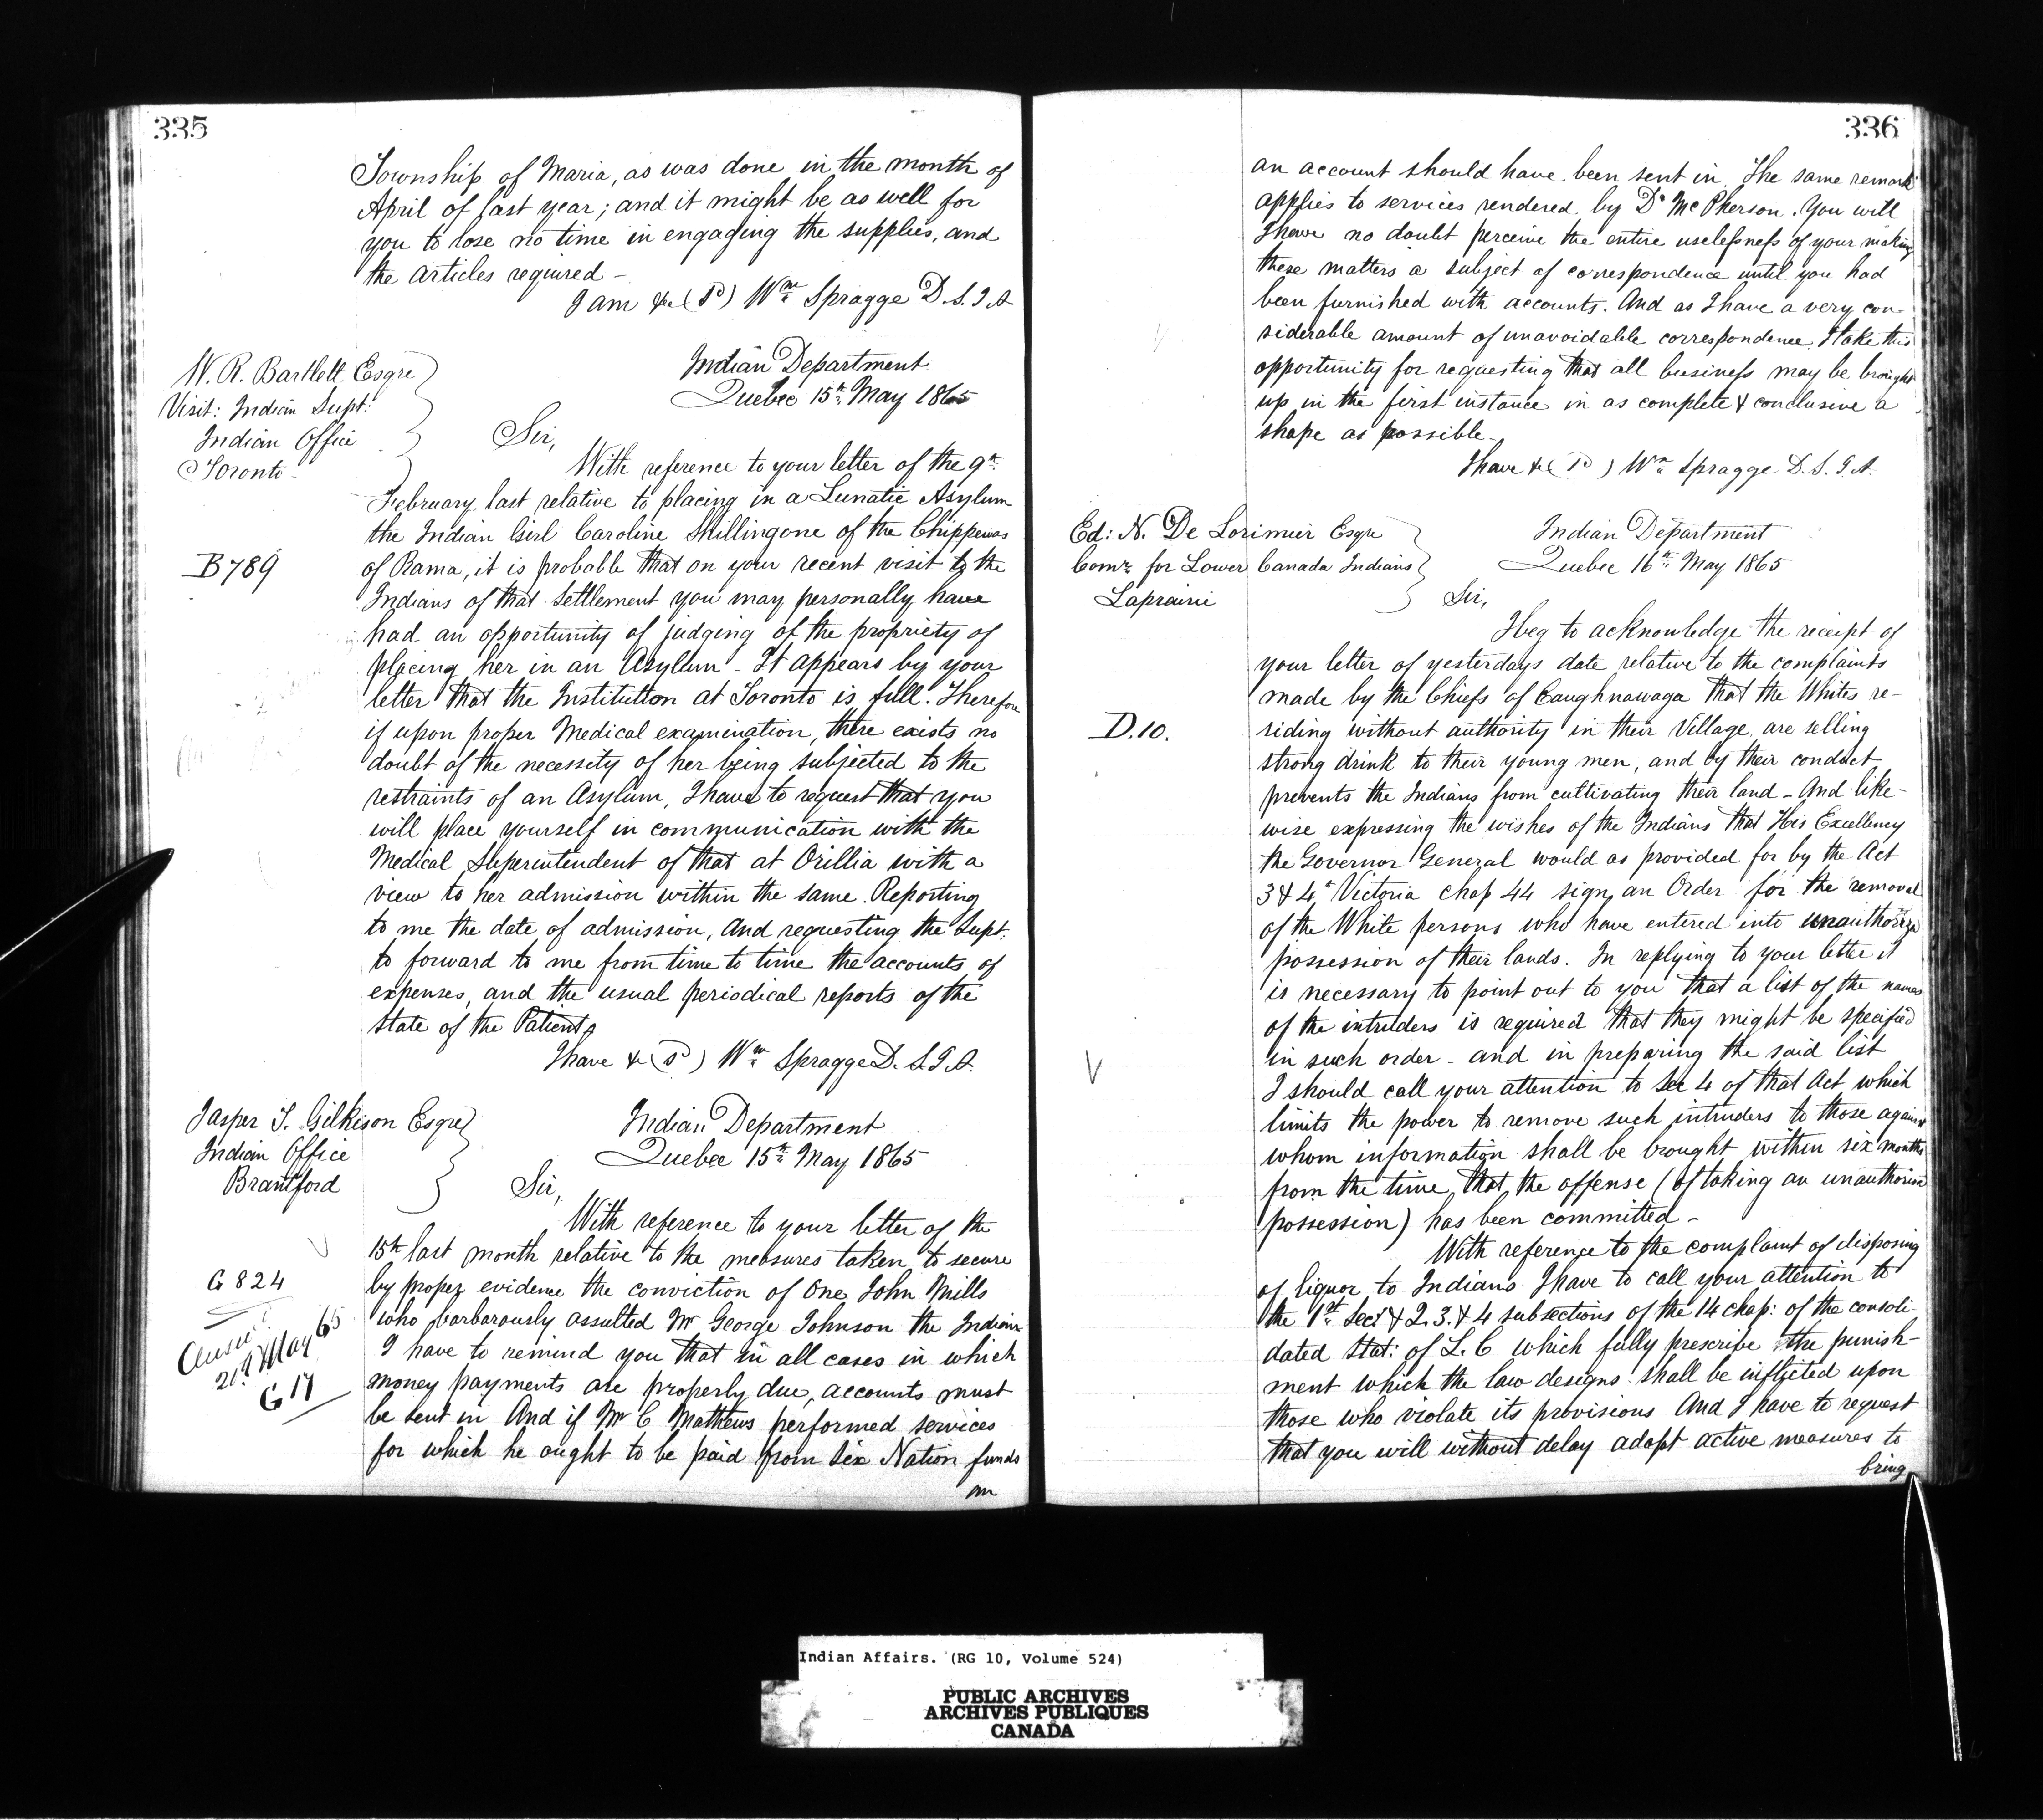 335
Township of Maria, as was done in the month of
April of last year; and it might be as well for
you to lose no time in engaging the supplies, and
the articles required -
I am &c (Sd) Wm Spragge D.S.I.A
W. R. Bartlett Esqre
Visit: Indian Supt:
Indian Office
Toronto
Indian Department
Quebec 15th May 1865
Sir,
With reference to your letter of the 9th
February last relative to placing in a Lunatic Asylum
the Indian Girl Caroline Shilling one of the Chippewas
B789
of Rama, it is probable that on your recent visit to the
Indians of that Settlement you may personally have
had an opportunity of judging of the propriety of
placing her in an Asylum - It appears by your
letter that the Institution at Toronto is full. Therefore
if upon proper Medical examination, there exists no
doubt of the necessity of her being subjected to the
restraints of an Asylum, I have to request that you
will place yourself in communication with the
Medical Superintendent of that at Orillia with a
view to her admission within the same. Reporting
to me the date of admission, and requesting the Supt:
to forward to me from time to time the accounts of
expenses, and the usual periodical reports of the
state of the Patient
I have & (Sd) Wm Spragge D.S.I.A.
Jasper T. Gilkison Esqre
Indian Office
Brantford
Indian Department
Quebec 15th May 1865
Sir,
With reference to your letter of the
15th last month relative to the measures taken to secure
G 824
by proper evidence the conviction of one John Mills
who barbarously assulted Mr George Johnson the Indian
Answd
21st May 65
G 17
I have to remind you that in all cases in which
money payments are properly due, accounts must
be sent in And if Mr C Mathews performed services
for which he ought to be paid from Six Nation funds
an
336
an account should have been sent in. The same remark
applies to services rendered by Dr McPherson. You will
I have no doubt perceive the entire uselessness of your making
these matters a subject of correspondence until you had
been furnished with accounts. And as I have a very con-
siderable amount of unavoidable correspondence, I take this
opportunity for requesting that all business may be brought
up in the first instance in as complete & conclusive a
shape as possible -
I have & (Sd) Wm Spragge D.S.I.A.
Ed: N. De Lorimier Esqre
Comr for Lower Canada Indians
Laprairie
Indian Department
Quebec 16th May 1865
Sir,
I beg to acknowledge the receipt of
your letter of yesterdays date relative to the complaints
made by the Chiefs of Caughnawaga that the Whites re-
D.10.
siding without authority in their Village, are selling
strong drink to their young men, and by their conduct
prevents the Indians from cultivating their land - And like-
wise expressing the wishes of the Indians that His Excellency
the Governor General would as provided for by the Act
3 & 4th Victoria Chap 44 sign an Order for the removal
of the White persons who have entered into unauthorized
possession of their lands. In replying to your letter it
is necessary to point out to you that a list of the names
of the intruders is required that they might be specified
in such order - and in preparing the said list
I should call your attention to Sec 4 of that Act which
limits the power to remove such intruders to those against
whom information shall be brought within six months
from the time that the offense (of taking an unauthorised
possession) has been committed -
With reference to the complaint of disposing
of liquor to Indians I have to call your attention to
the 1st Sect & 2.3.& 4 subsections of the 14 chap: of the consoli-
dated Stat: of L.C which fully prescribe the punish-
ment which the law designs shall be inflicted upon
those who violate its provisions And I have to request
that you will without delay adopt active measures to
bring
Indian Affairs. (RG 10, Volume 524)
PUBLIC ARCHIVES
ARCHIVES PUBLIQUES
CANADA